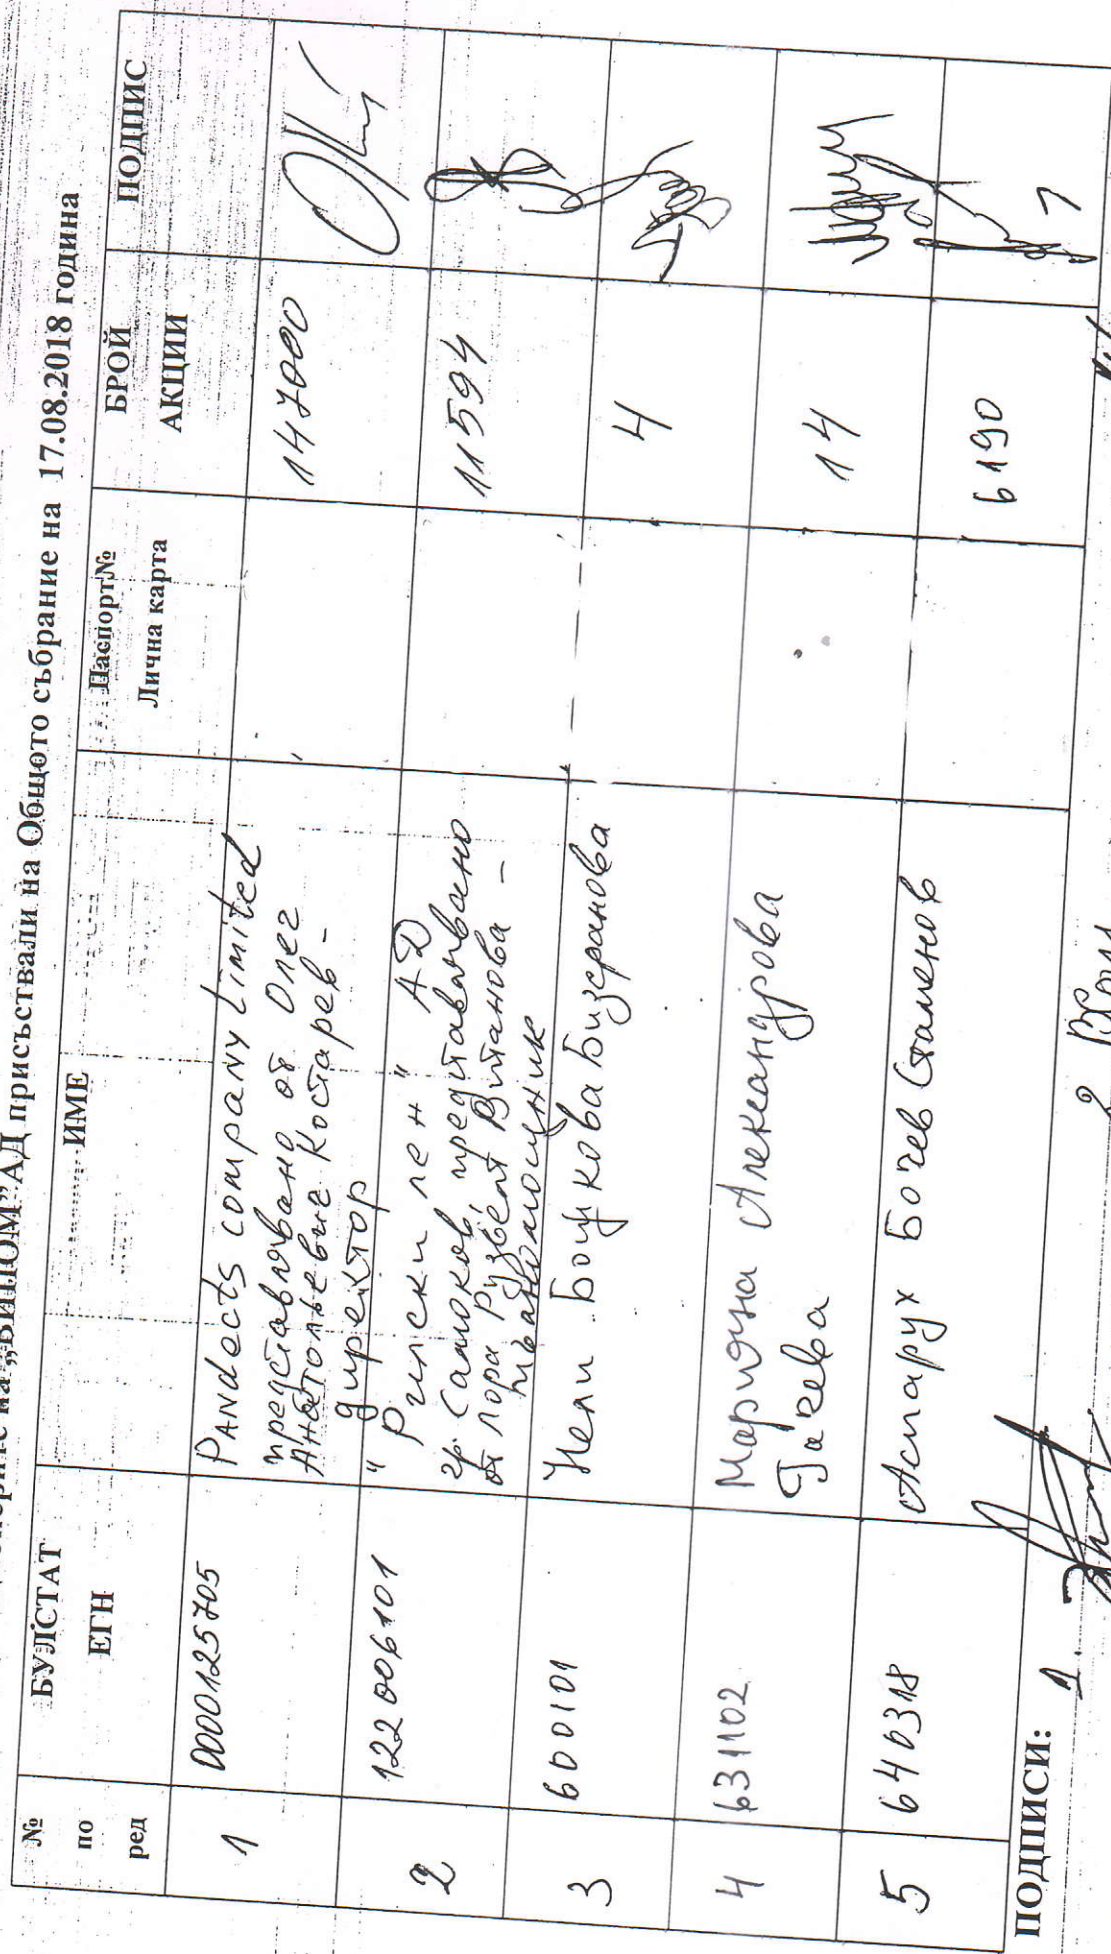 на „ВИПОМ” АД присъствали на Общото събрание на 17.08.2018 година
№ по ред
БУЛСТАТ ЕГН
ИМЕ
Паспорт№ Лична карта
БРОЙ АКЦИИ
ПОДПИС
1
0000125705
Pandects company Limited
представлявано от Олег
Анатольевич Костарев -
директор
147000
2
122006101
" Рилски лен " АД
гр. Самоков, представлявано
от Лора Рузвелт Витанова -
пълномощник
11594
3
600101
Нели Бошкова Бизеранова
4
4
631102
Марияна Александрова
Гачева
14
5
640318
Аспарух Бочев Стаменов
6190
ПОДПИСИ:
1.
2.